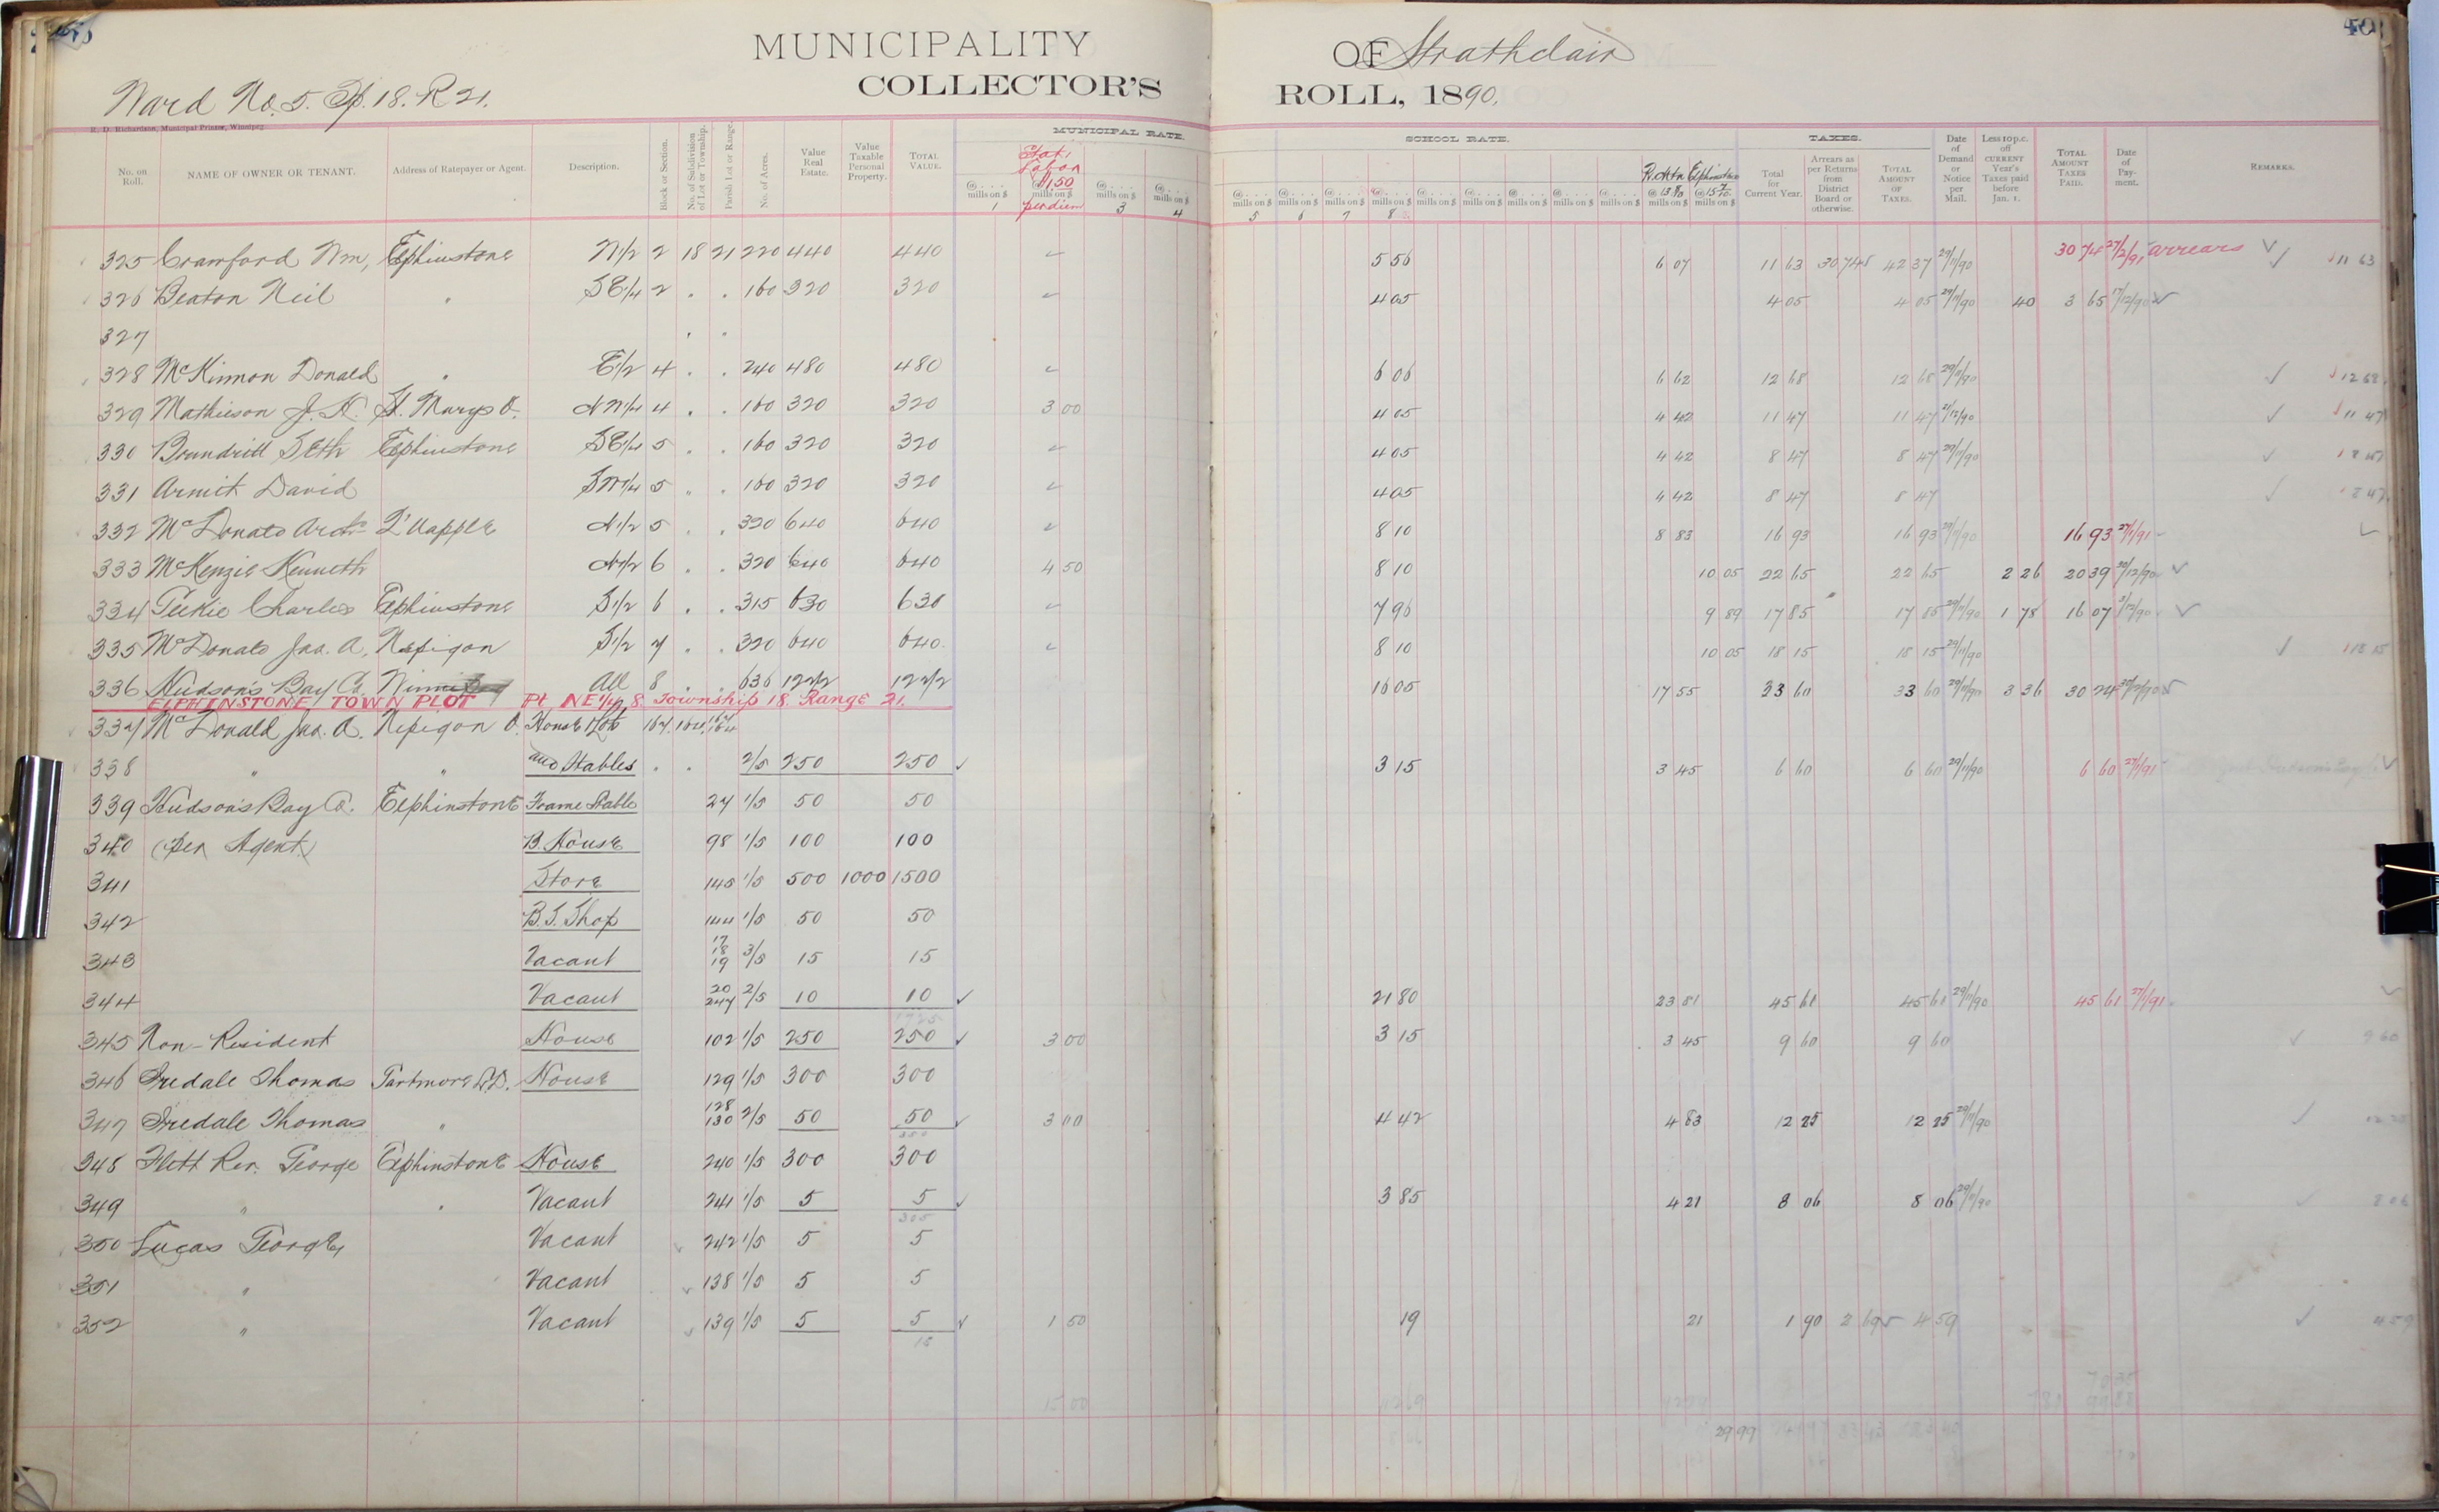 40
MUNICIPALITY OF Strathclair
COLLECTOR'S ROLL, 1890.
Ward No. 5. Tp. 18. R 21.
R. D. Richardson, Municipal Printer, Winnipeg.
MUNICIPAL RATE. SCHOOL RATE. TAXES.
No. on Roll. NAME OF OWNER OR TENANT. Address of Ratepayer or Agent. Description. Block or Section. No. of Subdivision of Lot or Township. Parish Lot or Range. No. of Acres. Value Real Estate. Value Taxable Personal Property. TOTAL VALUE. @ mills on $ 1 Stat. Labor $1.50 per diem @ mills on $ 3 @ mills on $ 4 @ mills on $ 5 @ mills on $ 6 @ mills on $ 7 @ mills on $ 8 @ mills on $ @ mills on $ @ mills on $ @ mills on $ @ mills on $ @ mills on $ Elphinstone @ mills on $ Total for Current Year. Arrears as per Returns from District Board or otherwise. TOTAL AMOUNT OF TAXES. Date of Demand or Notice per Mail. Less 10 p.c. off CURRENT Year's Taxes paid before Jan. 1. TOTAL AMOUNT TAXES PAID. Date of Payment. REMARKS.
325 Crawford Wm, Elphinstone N1/2 2 18 21 220 440 440 ✓ 5 56 6 07 11 63 30 74 42 37 29/11/90 30 74 27/2/91 arrears ✓ 11 63
326 Beaton Neil " SE1/4 2 . . 160 320 320 ✓ 4 05 4 05 4 05 29/11/90 40 3 65 17/12/90 ✓
327 . .
328 McKinnon Donald " E1/2 4 . . 240 480 480 ✓ 6 06 6 62 12 68 12 68 29/11/90 ✓ 12 68
329 Mathieson J. K. St. Marys O. NW1/4 4 . . 160 320 320 3 00 4 05 4 42 11 47 11 47 2/12/90 ✓ 11 47
330 Brundritt Seth Elphinstone SE1/4 5 . . 160 320 320 ✓ 4 05 4 42 8 47 8 47 29/11/90 ✓ 8 47
331 Armit David SW1/4 5 " . 160 320 320 ✓ 4 05 4 42 8 47 8 47 ✓ 8 47
332 McDonald Archd Q'Uapple N1/2 5 . . 320 640 640 ✓ 8 10 8 83 16 93 16 93 29/11/90 16 93 27/1/91 ✓
333 McKenzie Kenneth N1/2 6 . . 320 640 640 4 50 8 10 10 05 22 65 22 65 2 26 20 39 30/12/90 ✓
334 Charles Elphinstone S1/2 6 . . 315 630 630 ✓ 7 96 9 89 17 85 17 85 29/11/90 1 78 16 07 5/12/90 ✓
335 McDonald Jas. A, Nepigon S1/2 7 . . 320 640 640 ✓ 8 10 10 05 18 15 18 15 29/11/90 ✓ 18 15
336 Hudson's Bay Co. Winnipeg All 8 . . 636 1272 1272 16 05 17 55 33 60 33 60 29/11/90 3 36 30 24 ✓
ELPHINSTONE TOWN PLOT Pt. NE 1/4, 8. Township 18. Range 21.
337 McDonald Jas. A. Nepigon O. House Lots 167. 164. 167 164
338 " " and Stables . . 2/5 250 250 ✓ 3 15 3 45 6 60 6 60 29/11/90 6 60 27/1/91 ✓
339 Hudson's Bay Co. Elphinstone Frame Stable 27 1/5 50 50
340 (per Agent) B. House 98 1/5 100 100
341 Store 145 1/5 500 1000 1500
342 B.S. Shop 144 1/5 50 50
343 Vacant 17 18 19 3/5 15 15
344 Vacant 20 247 2/5 10 10 ✓ 21 80 23 81 45 61 45 61 29/11/90 45 61 27/1/91 ✓
1725
345 Non-Resident House 102 1/5 250 250 ✓ 3 00 3 15 3 45 9 60 9 60 ✓ 9 60
346 Iredale Thomas House 129 1/5 300 300
347 Iredale Thomas " 128 130 2/5 50 50 ✓ 3 00 4 42 4 83 12 25 12 25 29/11/90 ✓ 12 25
350
348 Flett Rev. George Elphinstone House 240 1/5 300 300
349 " " Vacant 241 1/5 5 5 ✓ 3 85 4 21 8 06 8 06 29/11/90 ✓ 8 06
305
350 Lucas George Vacant 242 1/5 5 5
351 " Vacant 138 1/5 5 5
352 " Vacant 139 1/5 5 5 ✓ 1 50 19 21 1 90 2 69 4 59 ✓ 4 59
15
15 00
29 99